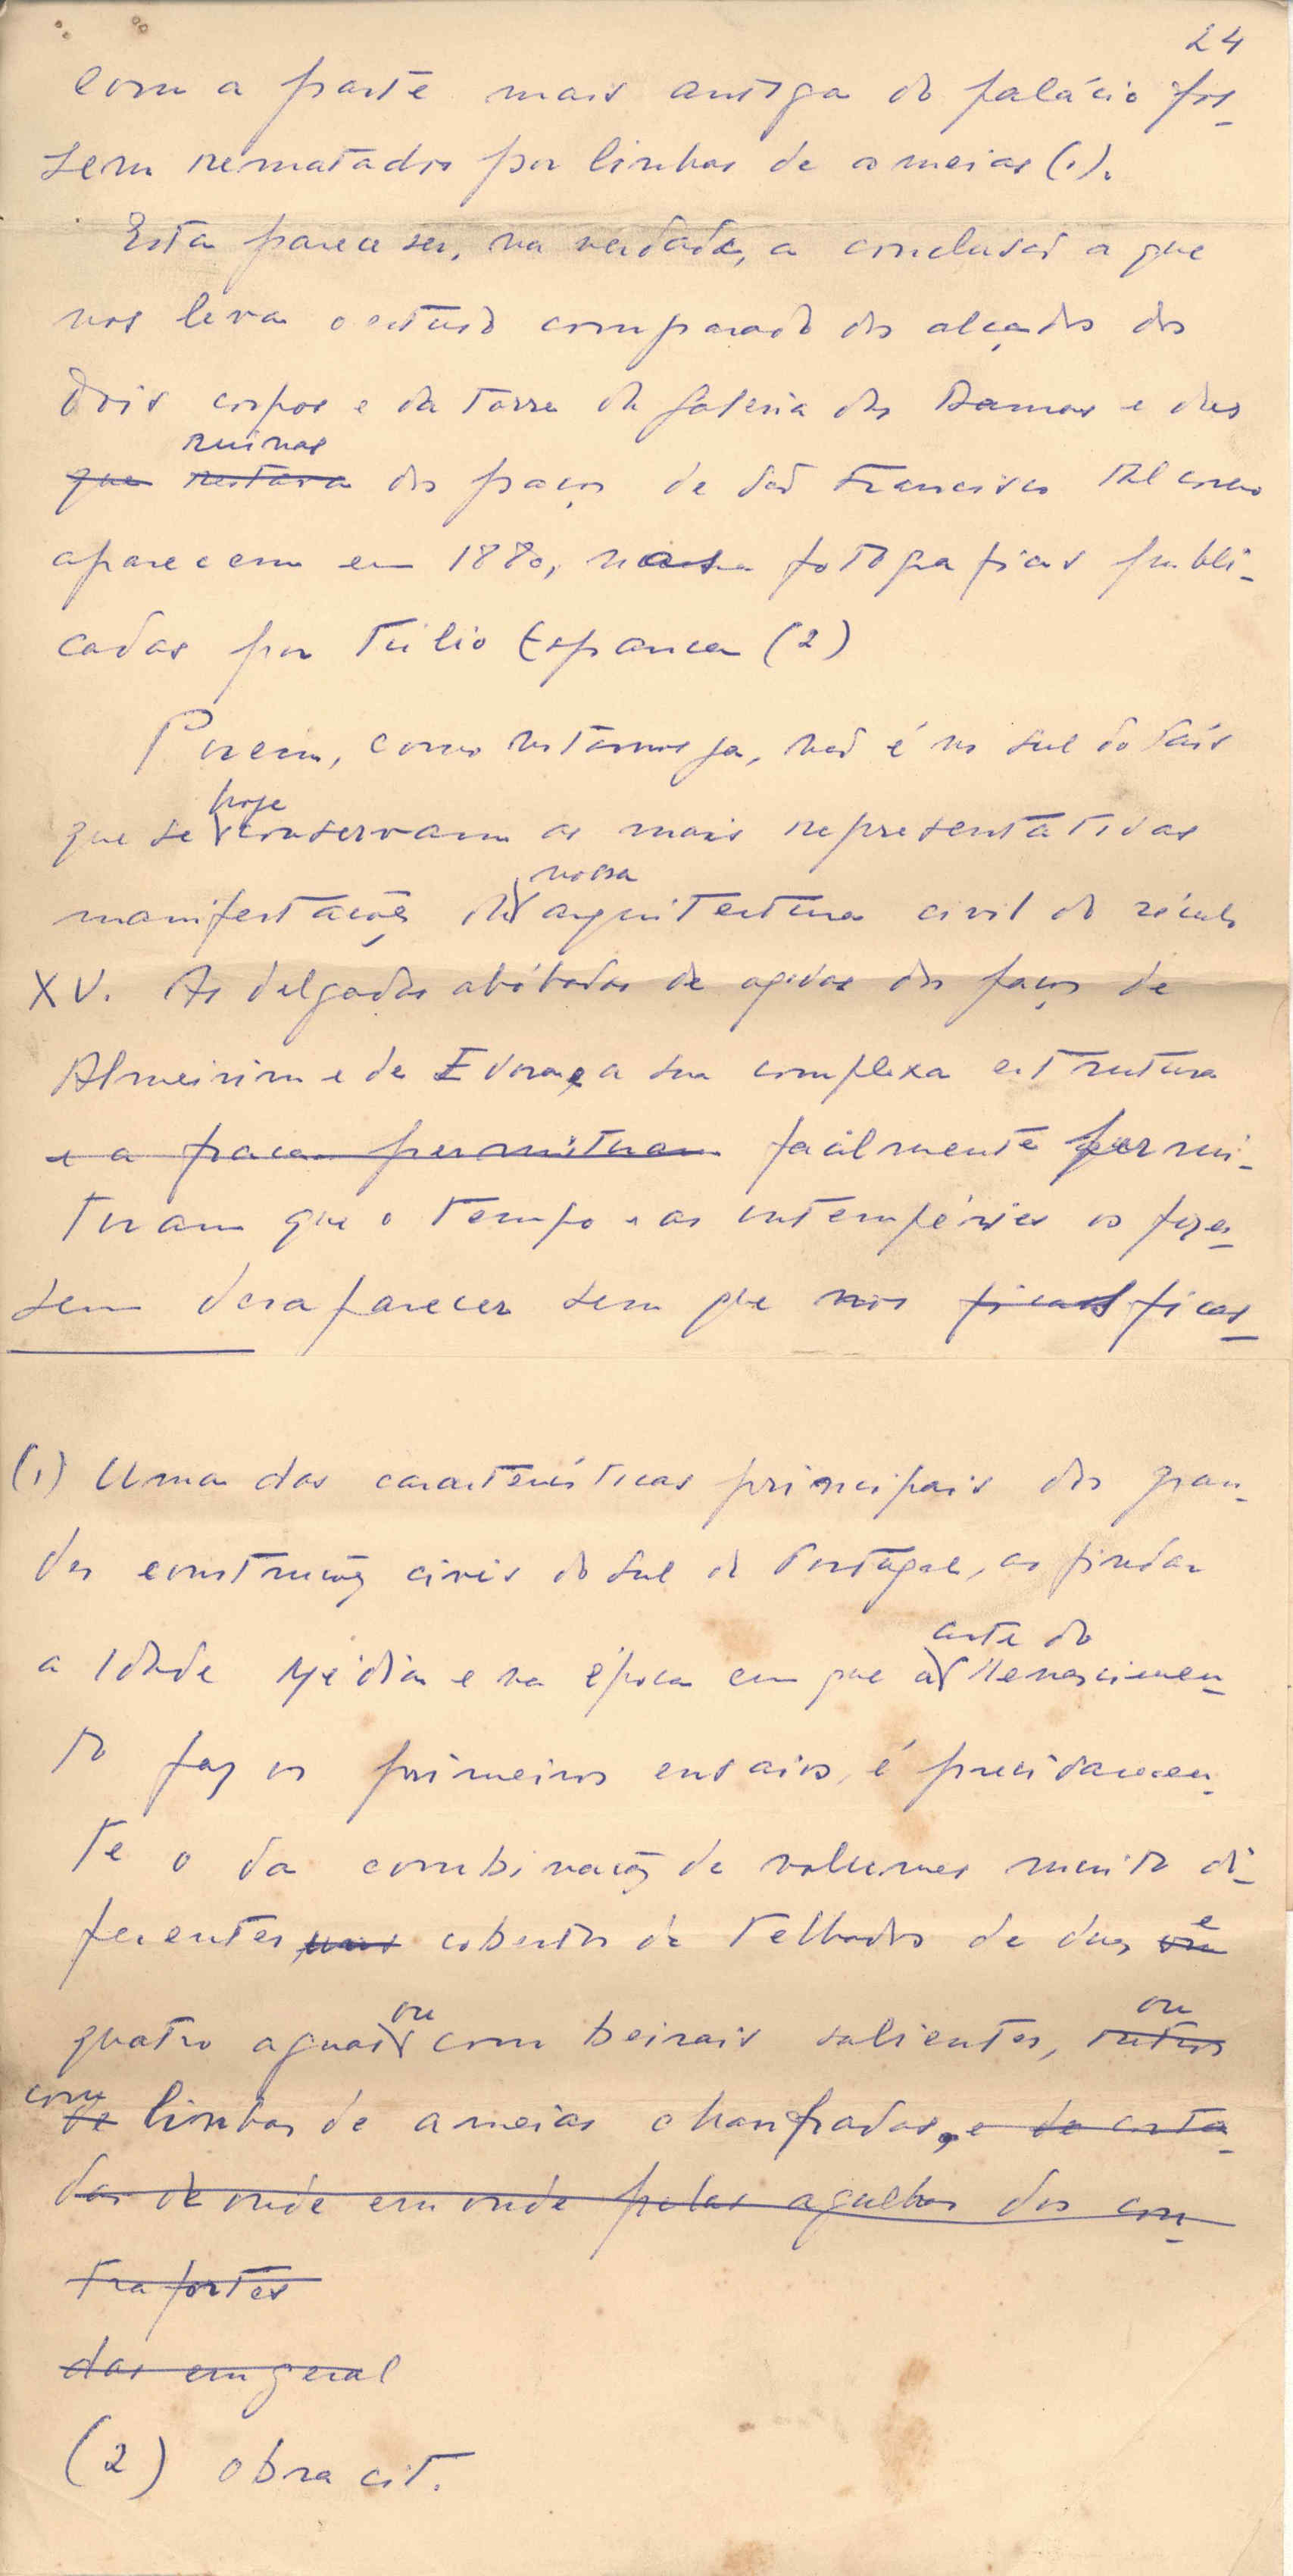 24
com a parte mais antiga do palácio fos-
sem rematados por linhas de ameias (1).
Esta parece ser, na verdade, a conclusão a que
nos leva o estudo comparado dos alçados dos
dois corpos e da torre da Galeria das Damas e das
ruinas
que restava dos paços de São Francisco tal como
aparecem em 1880, nas fotografias publi-
cadas por Túlio Espanca (2)
Porem, como notamos ja, não é no sul do País
hoje
que se conservam as mais representativas
nossa
manifestações da arquitectura civil do século
XV. As delgadas abóbadas de ogivas dos paços de
Almeirim e de Evora, e a sua complexa estrutura
e a fraca permitiram facilmente permi-
tiram que o tempo e as intempéries os fizes-
sem desaparecer sem que nos ficas ficas-
(1) Uma das características principais das gran-
des construções civis do sul de Portugal, ao findar
arte do
a Idade Média e na época em que a Renascimen-
to faz os primeiros ensaios, é precisamen-
te o da combinação de volumes muito di-
e
ferentes uns cobertos de telhados de duas ou
ou
ou
quatro aguas com beirais salientes, outros
com
de linhas de ameias chanfradas, e de corta-
das de onde em onde pelas agulhas dos con-
trafortes
das em geral
(2) obra cit.